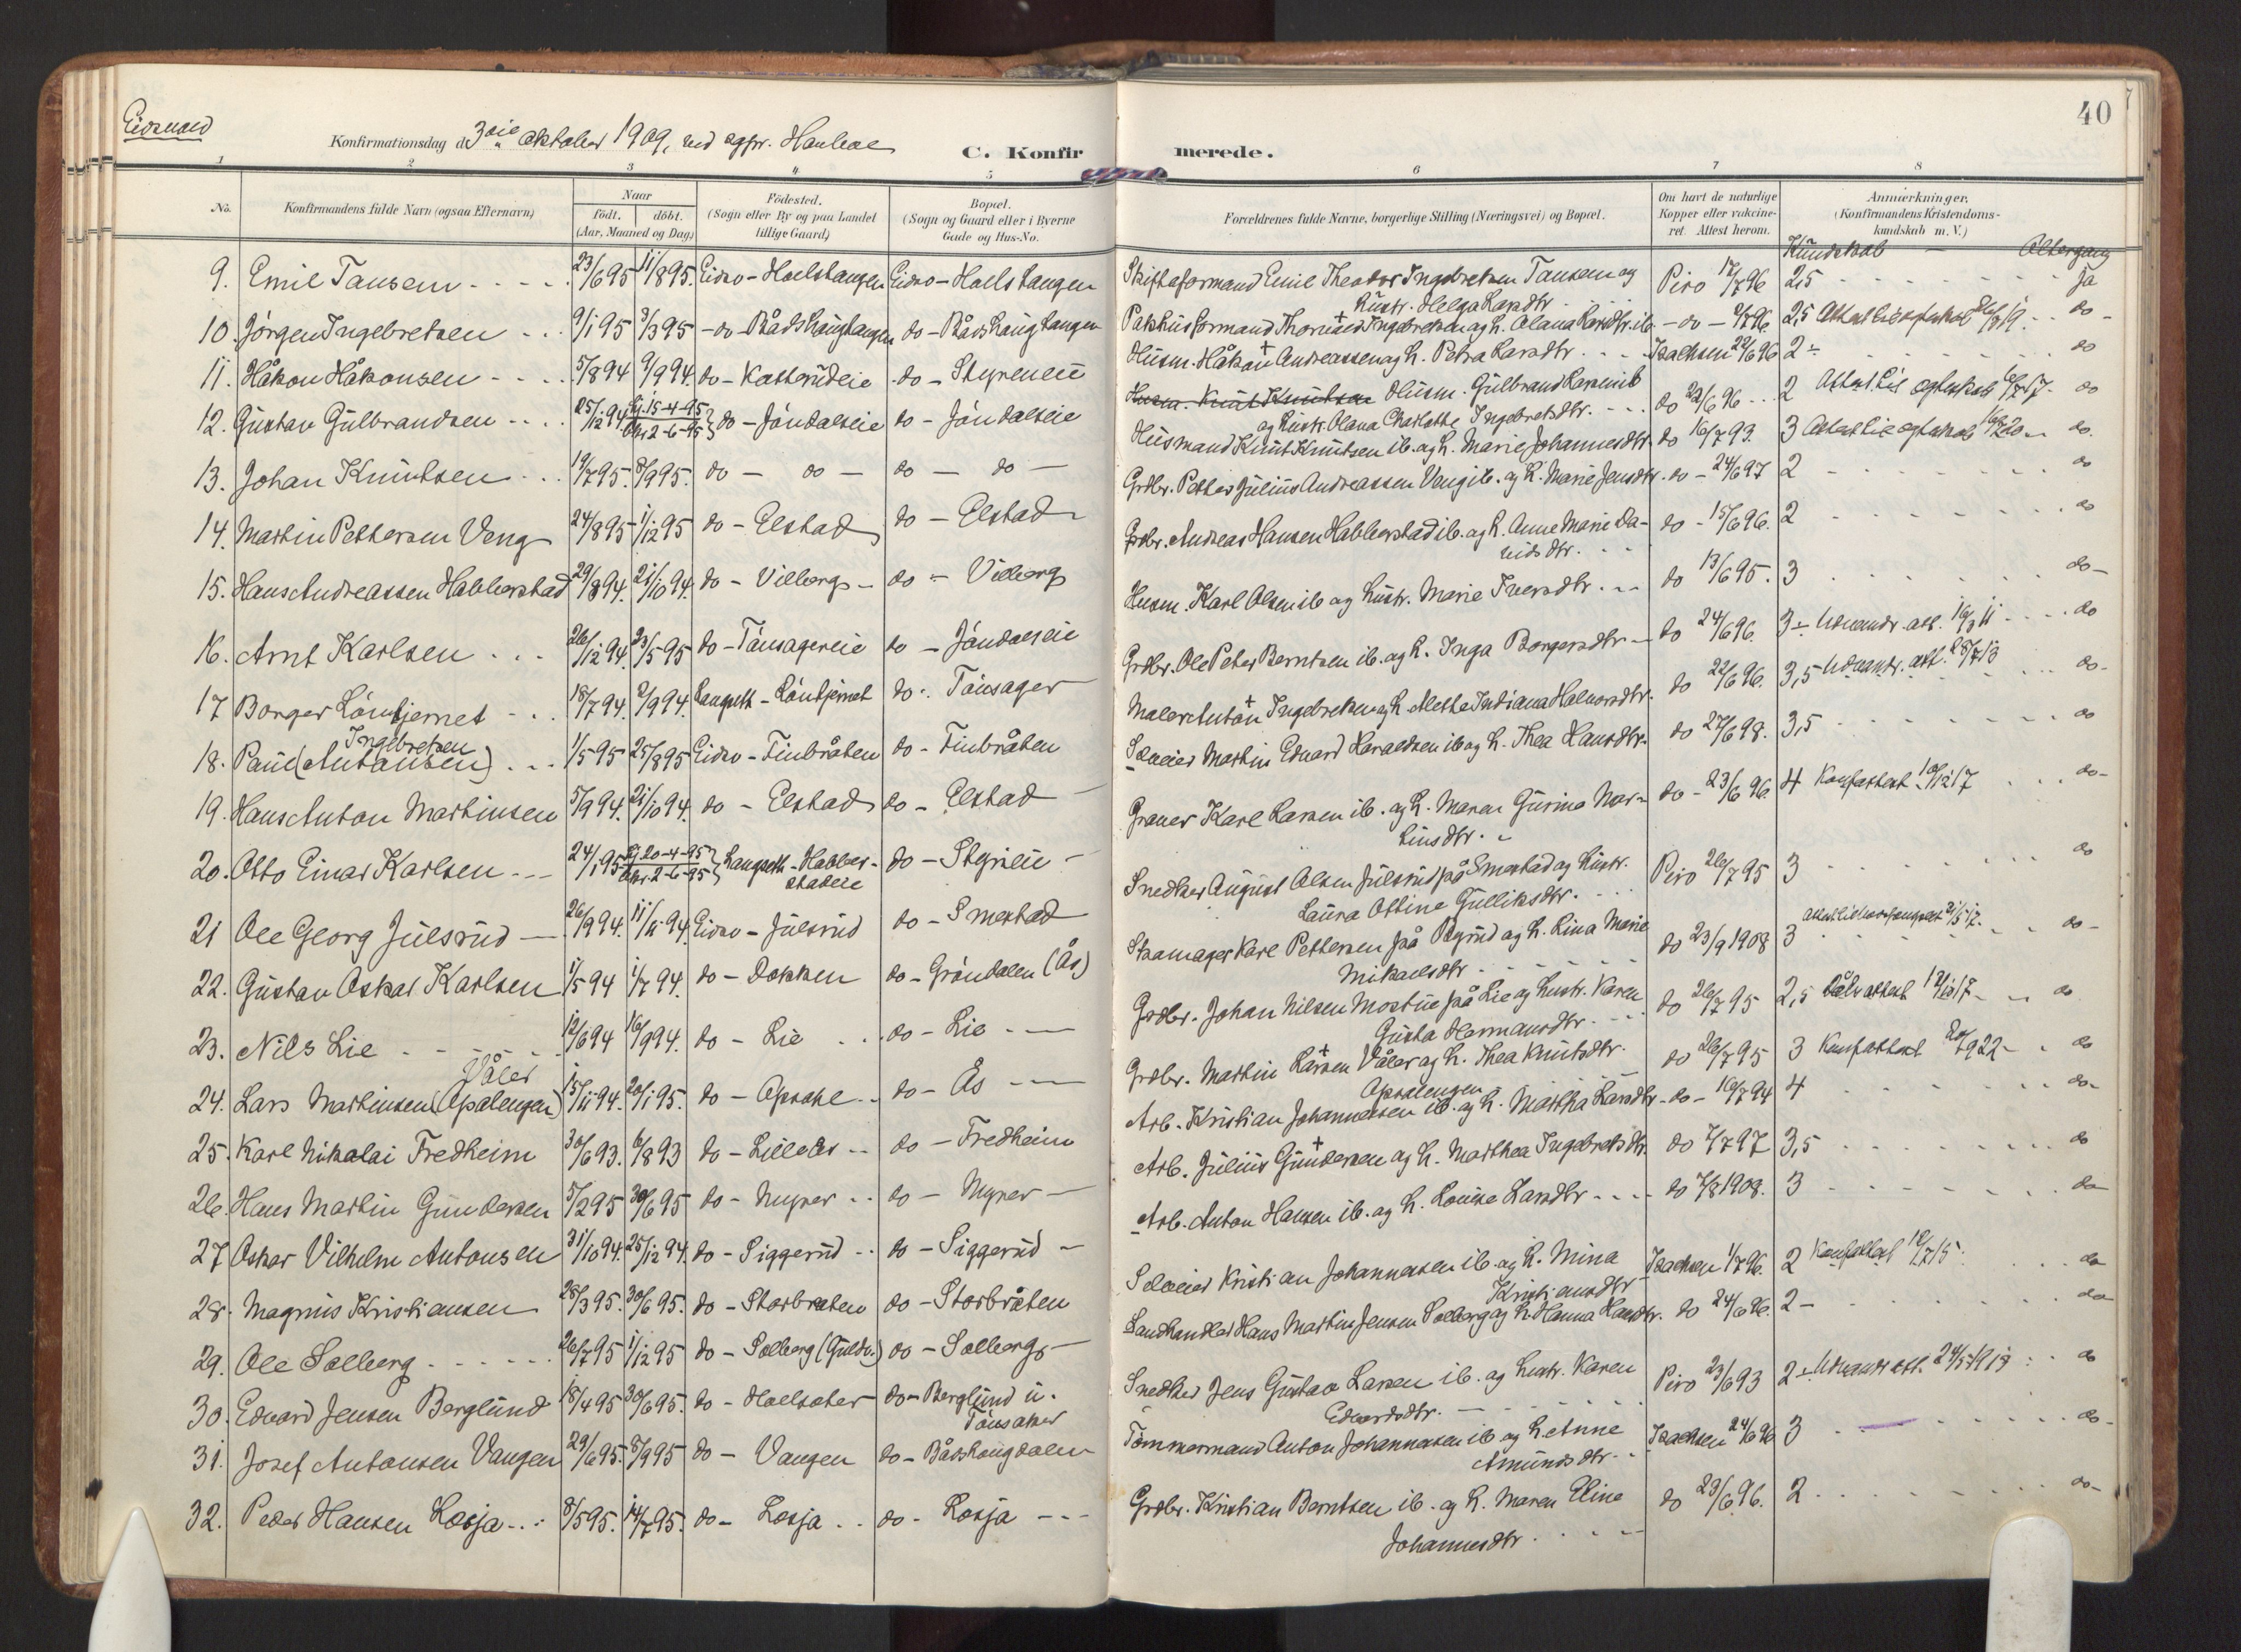 Eidsvold
40
Konfirmationsdag d. 3die oktober 1909, ved sgpr.
C. Konfirmerede.
1 2 3 4 5 6 7 8
No.
Konfirmandens fulde Navn (ogsaa Efternavn)
Naar
födt. döbt.
(Aar, Maaned og Dag)
Födested.
(Sogn eller By og paa Landet
tillige Gaard)
Bopæl.
(Sogn og Gaard eller i Byerne
Gade og Hus-No.
Forældrenes fulde Navne, borgerlige Stilling (Næringsvei) og Bopæl.
Om havt de naturlige
Kopper eller vakcine-
ret. Attest herom.
Anmærkninger.
(Konfirmandens Kristendoms-
kundskab m. V.)
Kundskab — Altergang
9. Emil Tansem 23/6 95 11/8 95. Eidsv - Hoelstangen Eidsv - Hoelstangen Skifteformand Emil Theodor Ingebretsen Tansem og
Hustr. Helga Larsdtr. Piro 17/7 96 2,5 Ja
10. Jørgen Ingebretsen 9/1 95 3/3 95 - do - Bådshaugtangen do - Bådshaugtangen Pakhusformand Thorvald + Ingebretsen og h. Olava Larsdtr. ib. - do - 2/7 96. 2,5 do -
11. Håkon Håkonsen 5/8 94 9/9 94. do - Kasterudeie do - Styreneie Husm. Håkon + Andreassen og h. Petra Larsdtr. Isachsen 22/6 96 2 - do
12. Gustav Gulbrandsen 25/12 94 Hj. 15-4-95 Kkr. 2-6-95 } do - Jøndalseie do - Jøndalseie Husm. Knut Knutsen Husm. Gulbrand Larsen ib
og Hustr. Olava Charlotte Ingebretsdtr. do 22/6 96 2 do
13. Johan Knutsen 19/7 95. 8/9 95. do - do - do - do - Husmand Knut Knutsen ib. og h. Marie Johannesdtr. do 16/7 93. 3 do.
14. Martin Pettersen Veng 24/8 95 1/12 95 do - Elstad do - Elstad Grdbr. Petter Julius Andreassen Veng ib. og h. Marie Jensdtr. do - 24/6 97 2 do
15. Hans Andreassen Habberstad 29/8 94. 21/10 94. do - Vilberg - do - Vilberg Grdbr. Andreas Hansen Habberstad ib. og h. Anne Marie Da-
vidsdtr. do - 15/6 96. 2 do
16. Arnt Karlsen 26/12 94. 23/5 95 do - Tönsagereie do - Jøndalseie Husm. Karl Olsen ib og hustr. Marie Iversdtr. do 13/6 95. 3 do -
17 Borger Löntjernet 18/7 94. 2/9 94. Langseth - Löntjernet do - Tönsager Grdbr. Ole Peter Berntsen ib. og h. Inga Borgersdtr. do 24/6 96. 3 - Udvandr. att. 16/3 11 do
18. Paul (Antonsen) Ingebretsen 1/5 95 25/8 95 Eidsv - Finbråten do - Finbråten Maler Anton + Ingebretsen og h. Mathe Indiana Halvorsdtr. do 22/6 96. 3,5 Udvandr. att. 28/7 13 do -
19. Hans Anton Martinsen 5/9 94. 21/10 94. do - Elstad do - Elstad Selveier Martin Edvard Haraldsen ib og h. Thea Hansdtr. do 27/6 98. 3,5 do
20. Otto Einar Karlsen 24/1 95 Hj. 20-4-95 Kkr. 2-6-95 } Langseth - Habber-
stadeie do - Styrieie - Graver Karl Larsen ib. og h. Maren Gurine Mar-
tinsdtr. do - 23/6 96 4 Konf. attest 10/12 17 do -
21 Ole Georg Julsrud 26/9 94. 11/11 94. Eidsv - Julsrud do - Smestad Snedker August Olsen Julsrud på Smestad og hustr.
Laura Ottine Gulliksdtr. Piro 26/7 95 3 do
22. Gustav Oskar Karlsen 1/5 94 1/7 94. do - Dokken do - Gröndalen (Ås) Skomager Karl Pettersen på Byrud og h. Lina Marie
Mikaelsdtr do 23/9 1908 3 do -
23. Nils Lie 12/6 94 16/9 94. do - Lie do - Lie Grdbr. Johan Nilsen Mostue på Lie og hustr. Karen
Gusta Hermansdtr. do 26/7 95 2,5 Dåbsattest 12/10 17 do
24. Lars Martinsen (Opsalengen) Våler 15/11 94. 20/1 95. do - Opsahl do - Ås Grdbr. Martin Larsen + Våler og h. Thea Knutsdtr.
Opsalengen do 26/7 95 3 Konf. attest 20/9 22 do
25. Karl Nikolai Fredheim 30/6 93. 6/8 93 do - Lilleås do - Fredheim Arb. Kristian Johannessen ib. og h. Martha Larsdtr. - do - 16/7 94 4 do -
26. Hans Martin Gundersen 5/2 95 30/6 95 do - Myrer do - Myrer - Arb. Julius + Gundersen og h. Marthea Ingebretsdtr. do 7/7 97 3,5 do
27 Oskar Vilhelm Antonsen 31/10 94. 25/12 94. do - Siggerud do - Siggerud - Arb. Anton Hansen ib. og h. Louise Larsdtr do 7/8 1908. 3 do
28. Magnus Kristiansen 28/3 95. 30/6 95. do - Storbråten do - Storbråten Selveier Kristian Johannessen ib. og h. Mina
Kristiansdtr Isachsen 1/7 96. 2 Konf. attest 12/7 15. do
29. Ole Solberg 26/7 95 1/12 95 do - Solberg (Guldv.) do - Solberg - Landhandler Hans Martin Jensen Solberg og h. Hanna Hansdtr. do 24/6 96. 2 - do
30. Edvard Jensen Berglund 18/4 95 30/6 95. do - Hoelsæter do - Berglund u.
Tönsaker Snedker Jens Gustav Larsen ib. og hustr. Karen
Edvardsdtr. Piro 23/6 93 2 - Udvandr. att. 24/5 1913 do
31. Josef Antonsen Vangen 29/6 95. 8/9 95 do - Vangen do - Bådshaugdalen Tömmermand Anton Johannessen ib og h. Anne
Amundsdtr. Isachsen 24/6 96 3 do -
32. Peder Hansen Losja 8/5 95. 14/7 95. do - Losja do - Losja Grdbr. Kristian Berntsen ib. og h. Maren Eline
Johannesdtr do 23/6 96. 2 do -